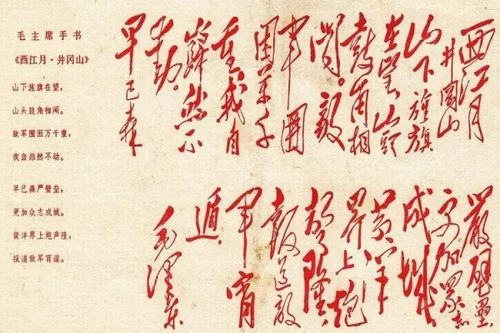 毛主席手书
《西江月·井冈山》
山下旌旗在望,
山头鼓角相闻。
敌军围困万千重,
我自岿然不动。
早已森严壁垒,
更加众志成城。
黄洋界上炮声隆,
报道敌军宵遁。
西江月
井岡山
山下旌旗
在望山頭
鼓角相
聞。敵
軍圍
困萬千
重我自
巋然不
動。
早已森
嚴壁壘
更加眾志
成城
黄洋
界上炮
聲隆
報道敵
軍宵
遁
毛澤東